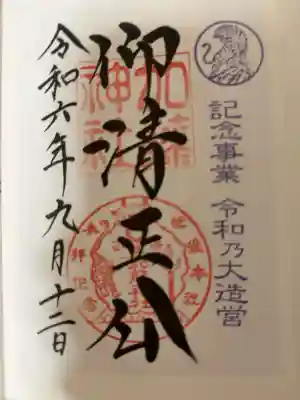 記念事業 令和乃大造営
仰清正公
加藤神社
令和六年九月十二日